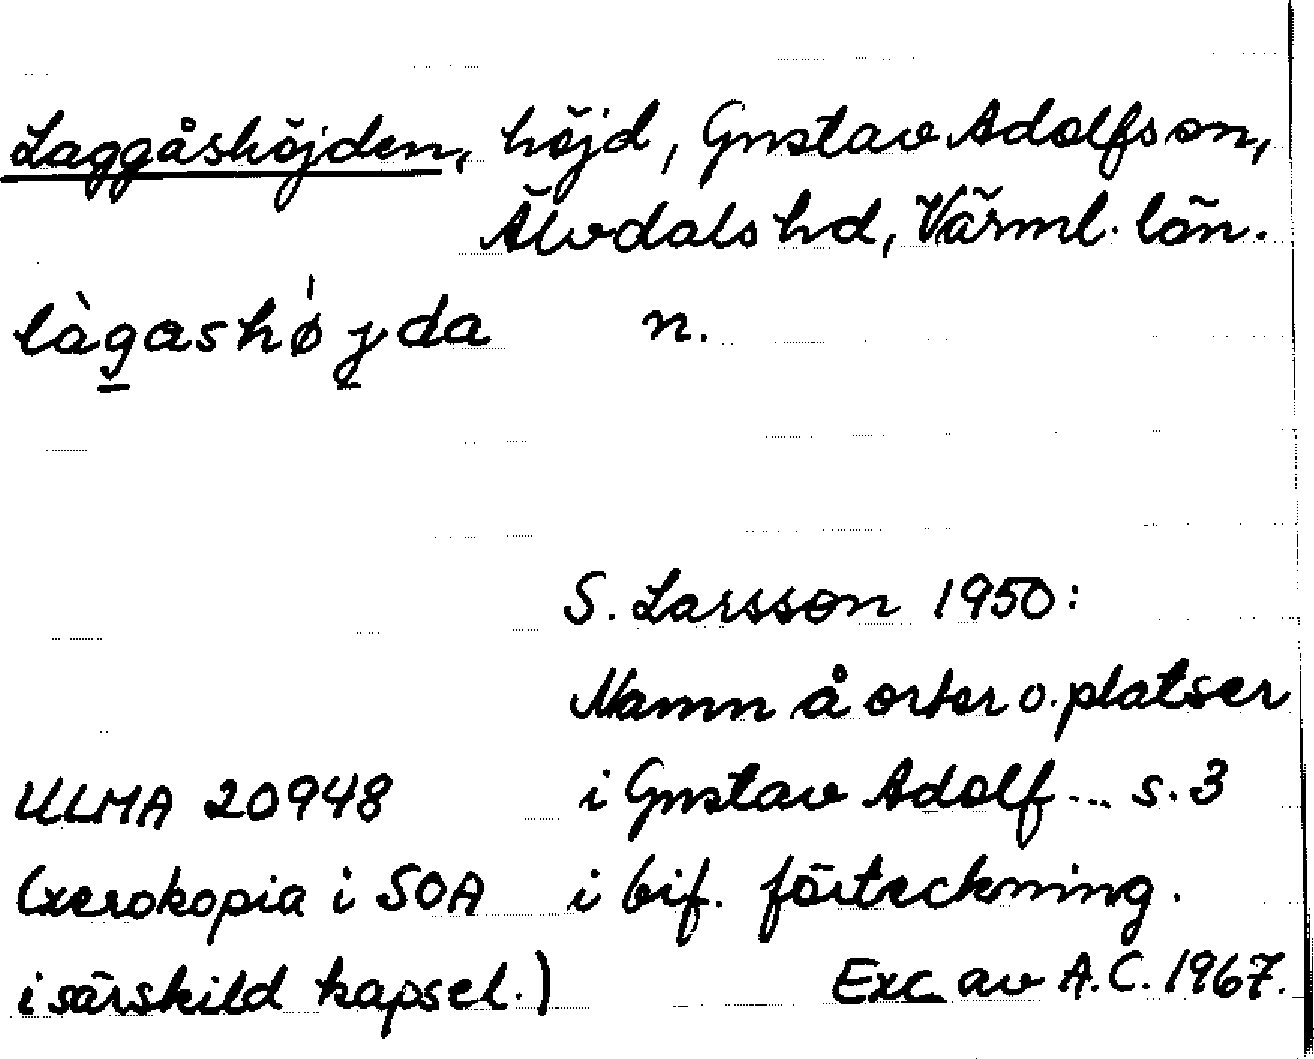 Laggåshöjden, höjd, Gustav Adolfs sn,
Älvdals hd, Värml. län.
làgashø̀jda n.
S. Larsson 1950:
Namn å orter o. platser
ULMA 20948 i Gustav Adolf... s. 3
(xerokopia i SOA i bif. förteckning.
i särskild kapsel.) Exc. av A.C. 1967.